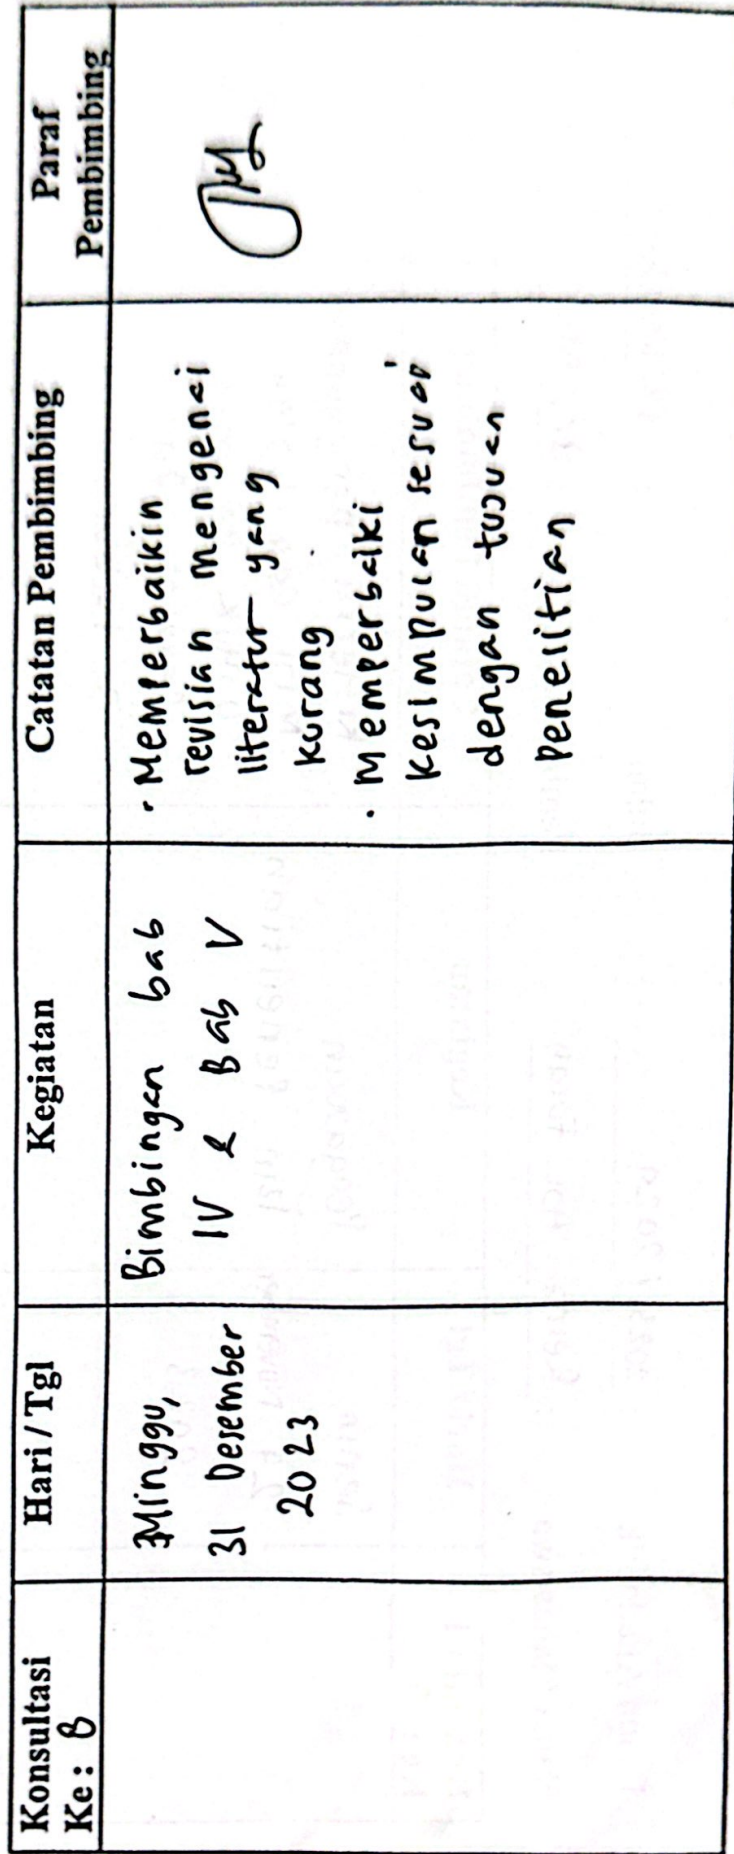 Konsultasi
Ke : 8
Hari / Tgl
Kegiatan
Catatan Pembimbing
Paraf
Pembimbing
Minggu,
31 Desember
2023
Bimbingan bab
IV & Bab V
· Memperbaikin
revisian mengenai
literatur yang
kurang
· Memperbaiki
Kesimpulan sesuai
dengan tujuan
penelitian